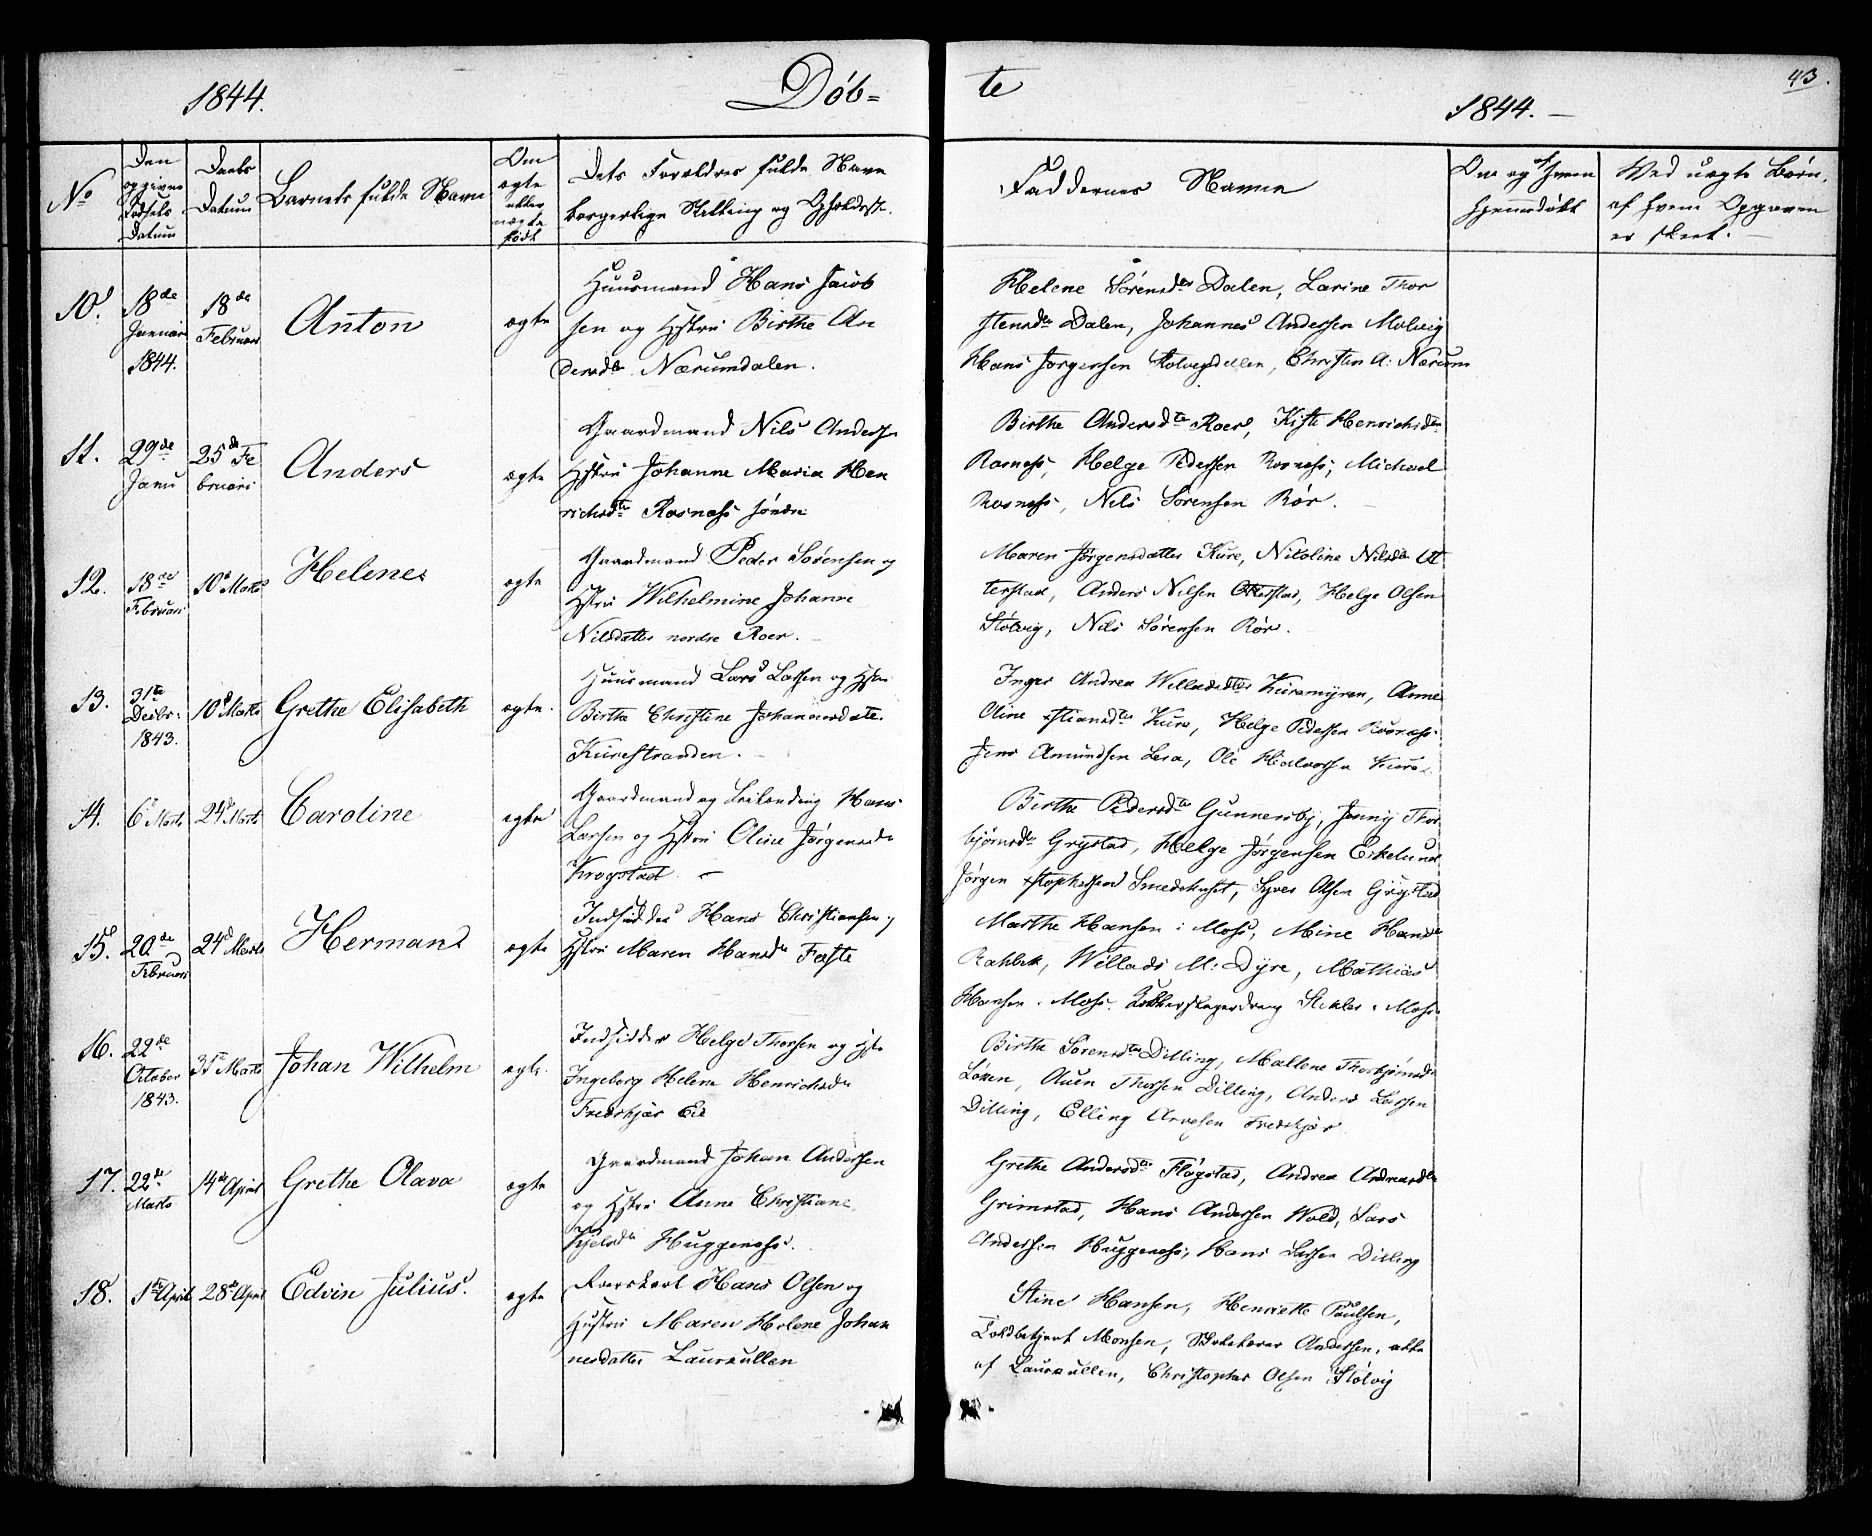 1844.
Döb=
te
43.
1844.
No
Den opgivne Födsels Datum
Daabs Datum
Barnets fulde Navn
Om ægte eller uægte født
Dets Forældres fulde Navn
borgerlige Stilling og Opholdsst.
Faddernes Navne
Om og af hvem hjemmedöbt
Ved uægte Börn,
af hvem Opgaven
er skeet.
10.
18de
Januar
1844.
18de
Februari
Anton
ægte
Huusmand Hans Jacob
sen og Hstru Birthe An
dersdtr Nærumdalen.
Helene Sörensdtr Dalen, Larine Thor
stensdtr Dalen, Johannes Anderssen Molvig
Hans Jørgenssen Stolvigdalen, Christen A: Nærum
11.
29de
Janu
25de Fe
bruari
Anders
ægte
Gaardmand Nils Anders.
Hstru Johanne Maria Hen
richsdtr Rosnæss söndre
Birthe Andersdtr Roer, Kisti Henrichsdtr
Rosness, Helge Pederssen Rosness, Michael
Rosness, Nils Sörensen Rör.
12.
18de
Februari
10de Marts
Helene
ægte
Gaardmand Peder Sörensen og
Hstru Wilhelmine Johanne
Nilsdatter nordre Roer.
Maren Jörgensdatter Kure, Nikoline Nilsdtr Ot
terstad, Anders Nilsen Otterstad, Helge Olsen
Stölvig, Nils Sörensen Rör.
13.
31te
Decbr:
1843.
10d Marts
Grethe Elisabeth
ægte.
Huusmand Lars Larsen og Hstru
Birthe Christine Johannesdatr.
Kurestranden.
Inger Andrea Willadsdtr Kuremyren, Anne
Oline xstiansdtr Kure, Helge Pedersen Rosnæss
Jens Amundsen Lera, Ole Halvorsen Kure.
14.
6te Marts
24d Marts
Caroline
ægte
Gaardmand og Leilænding Hans
Larsen og Hstru Oline Jörgensdr
Krogstad
Birthe Pedersdtr Gunnersby, Jenny Thor
björnsdtr Grystad, Helge Jörgensen Eskelund
Jörgen xstophersen Smedshuset, Syver Olsen Grystad
15.
20de
Februari
24d Marts
Herman
ægte
Indsidder Hans Christiansen og
Hstru Maren Hansdtr Feste
Marthe Hansen i Moss, Mine Hansdtr
Rahbek, Willads M: Dyre, Mathias
Hansen i Moss, Kobberslagerdreng Stibler i Moss
16.
22de
October
1843.
31te Marts
Johan Wilhelm
ægte.
Indsidder Helge Thorsen og Hstr
Ingeborg Helene Henrichsdtr
Fredskjær Eie
Birthe Sörensdtr Dilling, Mallene Thorbjörnsdtr
Löken, Auen Thorsen Dilling, Anders Larssen
Dilling, Elling Arvesen Fredskjær
17.
22de
Marts
14de April
Grethe Olava
ægte
Gaardmand Johan Andersen
og Hstru Anne Christiane
Kjelsdtr Huggenæss.
Grethe Andersdtr Flögstad, Andrea Andreasdtr
Grimstad, Hans Andersen Wold, Lars
Anderssen Huggeness, Hans Larssen Dilling
18.
1ste April
28de April
Edvin Julius.
ægte
Hans Olsen og
Hustru Maren Helene Johan
nesdatter Laurkullen
Stine Hansen, Henriette Paulsen,
Toldbetjent Monsen, Andersen, alle
af Laurkullen, Christopher Olsen Stölvig